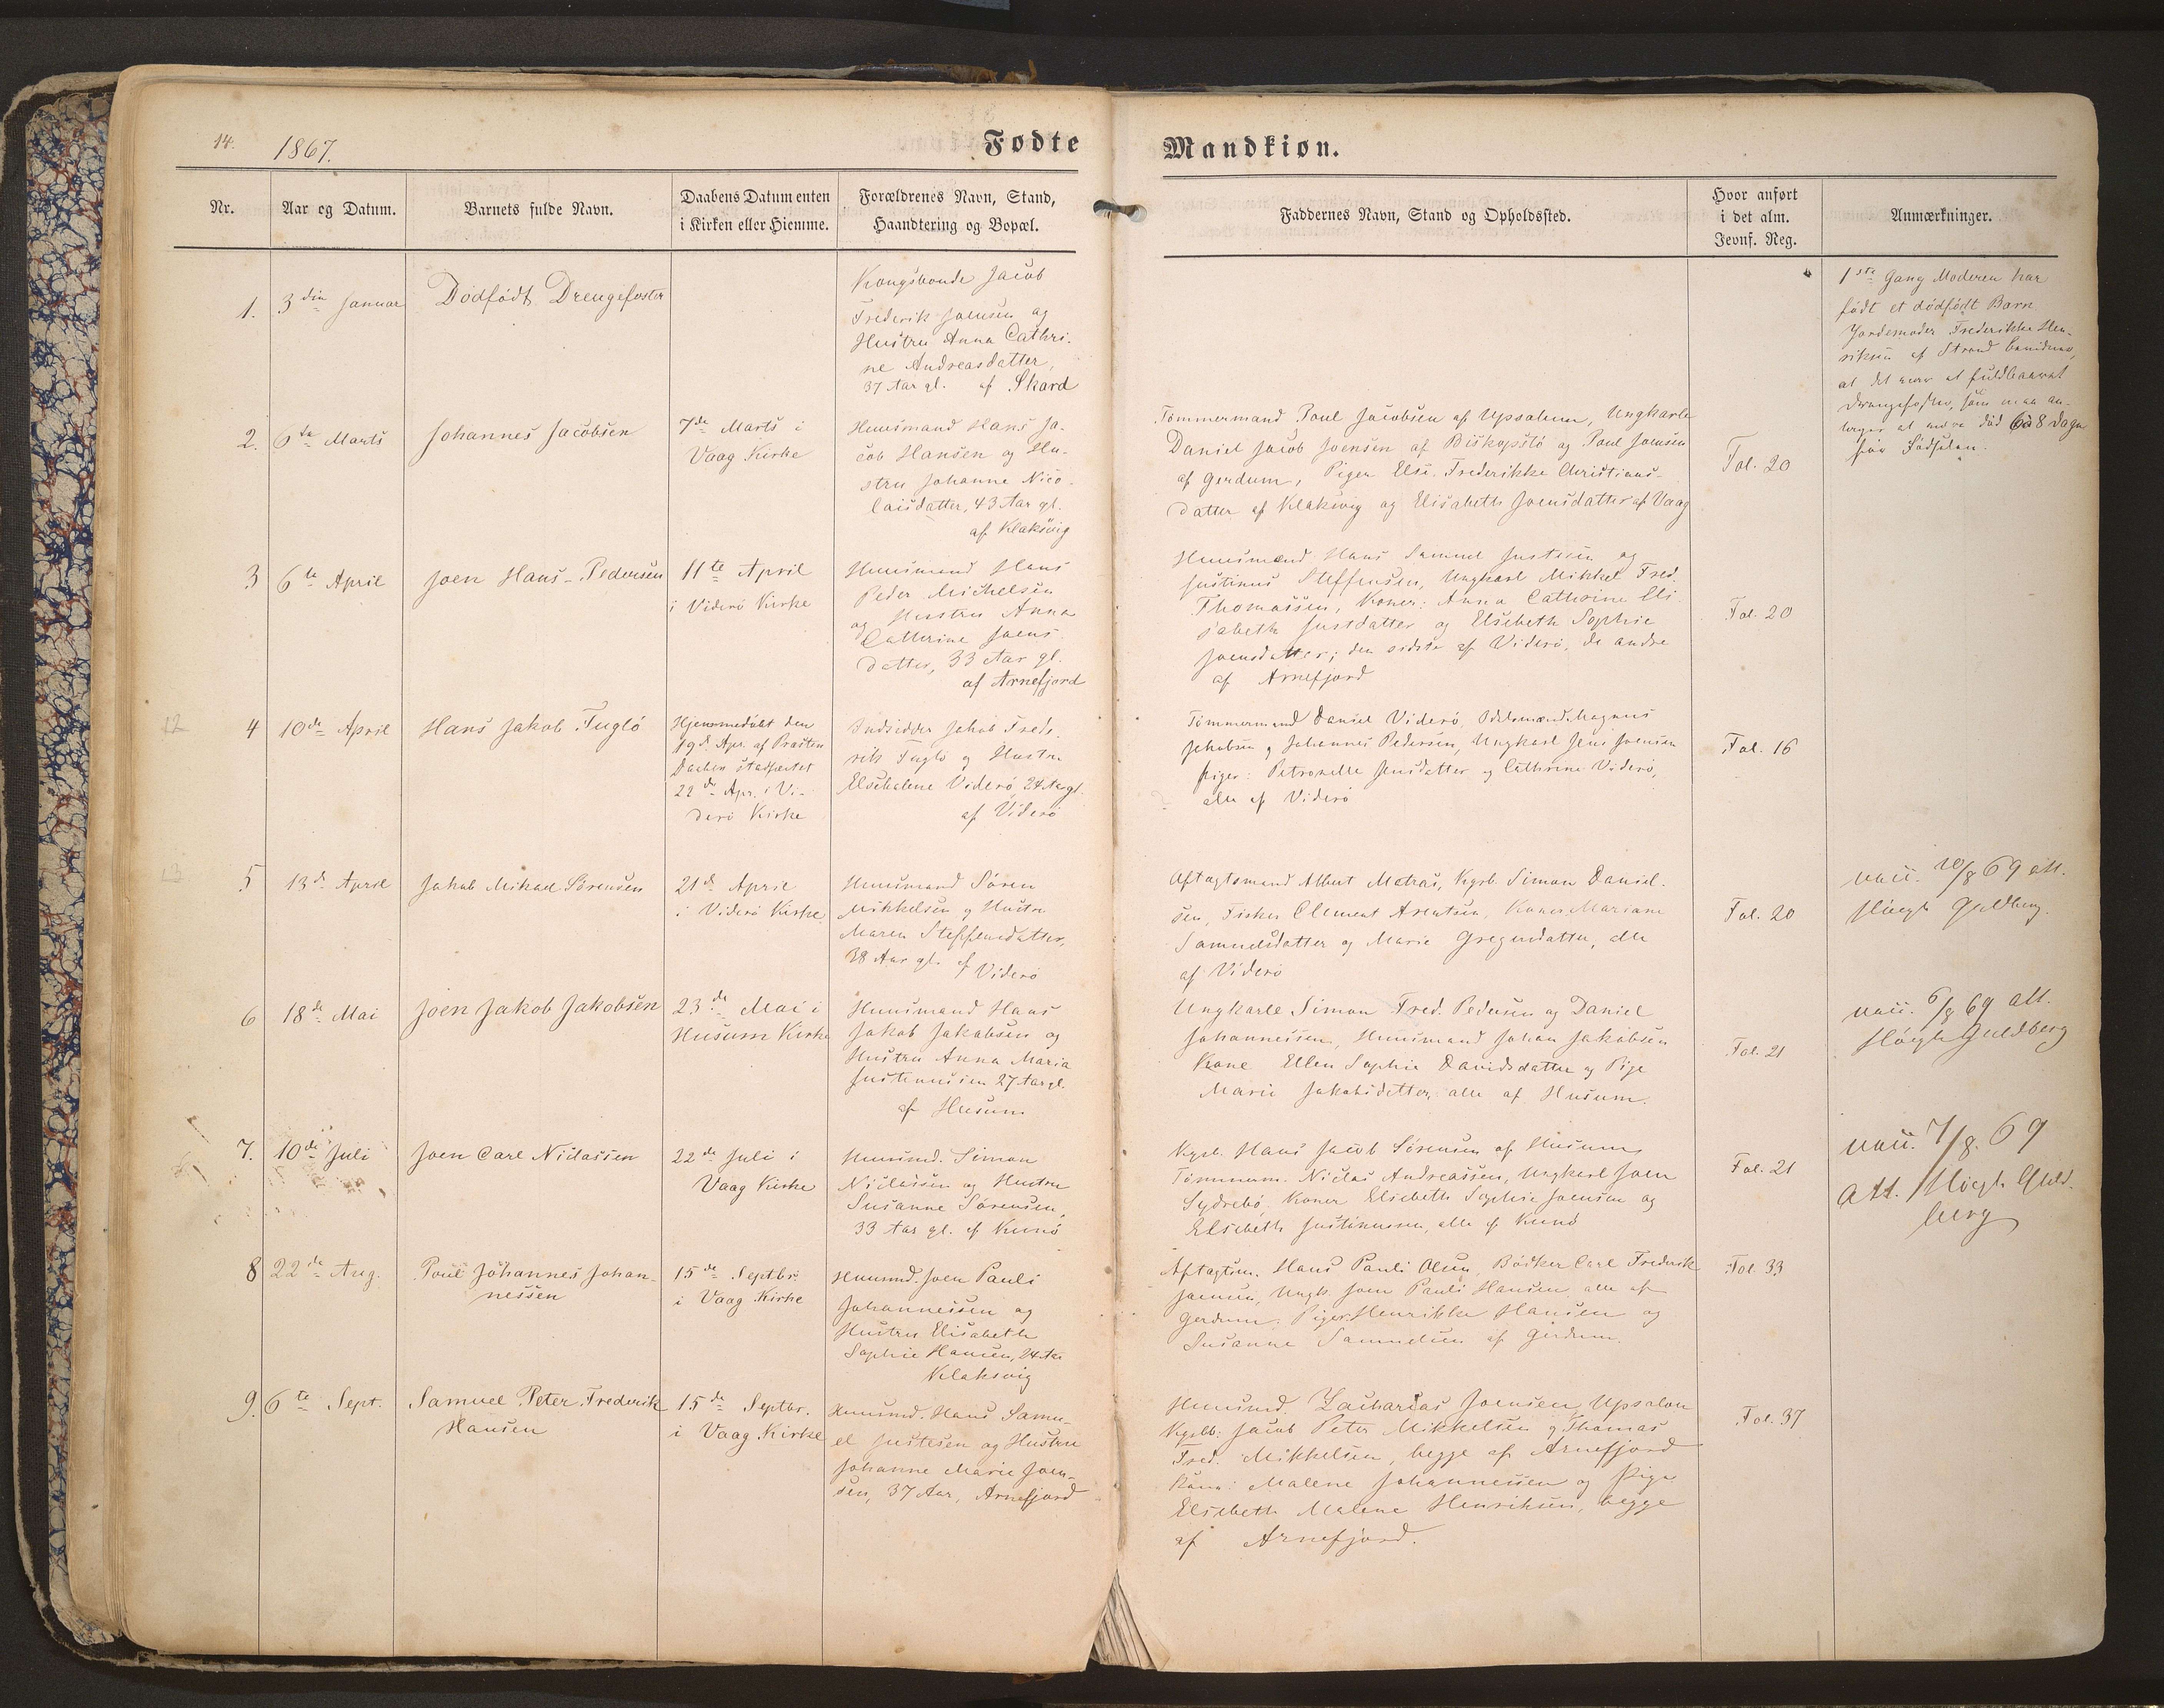 14.
1867.
Fødte
Mandkiøn.
Nr.
Aar og Datum.
Barnets fulde Navn.
Daabens Datum enten
i Kirken eller Hiemme.
Forældrenes Navn, Stand,
Haandtering og Bopæl.
Faddernes Navn, Stand og Opholdssted.
Hvor anført
i det alm.
Jevnf. Reg.
Anmærkninger.
1.
3die Januar
Dödfödt Drengefoster
Kongsbonde Jacob
Frederik Joensen og
Hustru Anna Cathri-
ne Andreasdatter,
37 Aar gl. af Skard
1ste Gang Moderen har
födt et dödfödt Barn
Jordemoder Frederikke Hen-
riksen af Strand
at det var et fuldbaaret
Drengefoster, som maa an-
tages at være död 6 à 8 Dage
før Fødselen.
2.
6te Marts
Johannes Jacobsen
7de Marts i
Vaag Kirke
Huusmand Hans Ja-
cob Hansen og Hu-
stru Johanne Nico-
laisdatter, 43 Aar gl.
af Klaksvig
Tømmermand Poul Jacobsen af Upsalum, Ungkarle
Daniel Jacob Joensen af Biskopstö og Poul Joensen
af Gerdum, Piger Else Frederikke Christians-
datter af Klaksvig og Elisabeth Joensdatter af Vaag
Fol. 20
3
6te April
Joen Hans Pedersen
11te April
i Viderö Kirke
Huusmand Hans
Peder Michelsen
og Hustru Anna
Cathrine Joens
datter, 33 Aar gl.
af Arnefjord
Huusmænd Hans Samuel Justesen og
Justinus Steffensen, Ungkarl Mikkel Fred.
Thomassen, Koner: Anna Cathrine Eli-
sabeth Justdatter og Elsebeth Sophie
Joensdatter; den sidste af Viderö, de andre
af Arnefjord
Fol. 20
12
4
10de April
Hans Jakob Fuglö
Hjemmedöbt den
19de Apr. af Præsten
Daaben stadfæstet
22de Apr. i Vi-
derö Kirke
Indsidder Jakob Frede-
rik Fuglö og Hustru
Elsebalene Viderö 24 Aar gl.
af Viderö
Tömmermand Daniel Viderö, Odelsmænd Magnus
Jakobsen og Johannes Pedersen, Ungkarl Jens Joensen
Piger: Petronelle Jensdatter og Cathrine Viderö,
alle af Viderö
Fol. 16
13
5
13de April
Jakob Mikael Sörensen
21de April
i Viderö Kirke
Huusmand Sören
Mikkelsen og Hustru
Maren Steffensdatter,
38 Aar gl. af Viderö
Aftagtsmand Albert Matras, Kgsb. Simon Daniel-
sen, Fisker Clement Arentsen, Koner Mariane
Samuelsdatter og Marie Gregersdatter, alle
af Viderö
Fol. 20
vacc. 10/8 69 att.
Høegh Guldberg.
6
18de Mai
Joen Jakob Jakobsen
23de Mai i
Husum Kirke
Huusmand Hans
Jakob Jakobsen og
Hustru Anna Maria
Justinussen 27 Aar gl.
af Husum
Ungkarle Simon Fred. Pedersen og Daniel
Johannessen, Huusmand Johan Jakobsen
Kone Ellen Sophie Davidsdatter og Pige
Marie Jakobsdatter, alle af Husum.
Fol. 21
vacc. 6/8 69 att.
Høegh Guldberg
7.
10de Juli
Joen Carl Niclassen
22de Juli i
Vaag Kirke
Huusmd. Simon
Niclassen og Hustru
Susanne Sörensen,
33 Aar gl. af Kunö
Kgsb. Hans Jacob Sörensen af Husum,
Tömmerm. Niclas Andreassen, Ungkarl Joen
Sydrebö, Koner Elsebeth Sophie Joensen og
Elsebeth Justinussen, alle af Kunö
Fol. 21
vacc. 7/8. 69
Att. Høegh Guld-
berg
8
22de Aug.
Poul Johannes Johan-
nessen
15de Septbr.
i Vaag Kirke
Huusmd. Joen Pauli
Johannessen og
Hustru Elisabeth
Sophie Hansen, 24 Aar
Klaksvig
Aftagtsm. Hans Pauli Olsen, Bödker Carl Frederik
Joensen, Ungk. Joen Pauli Hansen, alle af
Gerdum; Piger: Henrikke Hansen og
Susanne Samuelsen af Gerdum.
Fol. 33
9.
6te Sept.
Samuel Peter Frederik
Hansen
15de Septbr.
i Vaag Kirke
Huusmd. Hans Samu-
el Justesen og Hustru
Johanne Marie Joen-
sen, 37 Aar, Arnefjord
Huusmd. Zacharias Joensen, Upsalum
Kgsb: Jacob Peter Mikkelsen og Thomas
Fred. Mikkelsen, begge af Arnefjord
Kone: Malene Johannessen og Pige
Elsebeth Malene Henriksen, begge
af Arnefjord.
Fol. 37